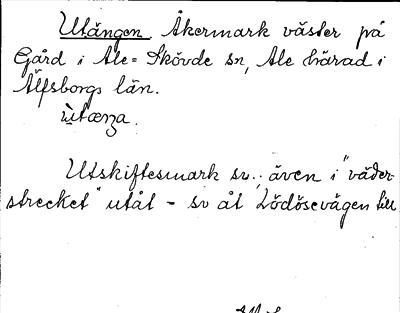 Utängen Åkermark väster på
Gård i Ale-Skövde sn, Ale härad i
Älfsborgs län.
Utskiftesmark sv.; även i "väder-
strecket" utåt - sv åt Lödösevägen till